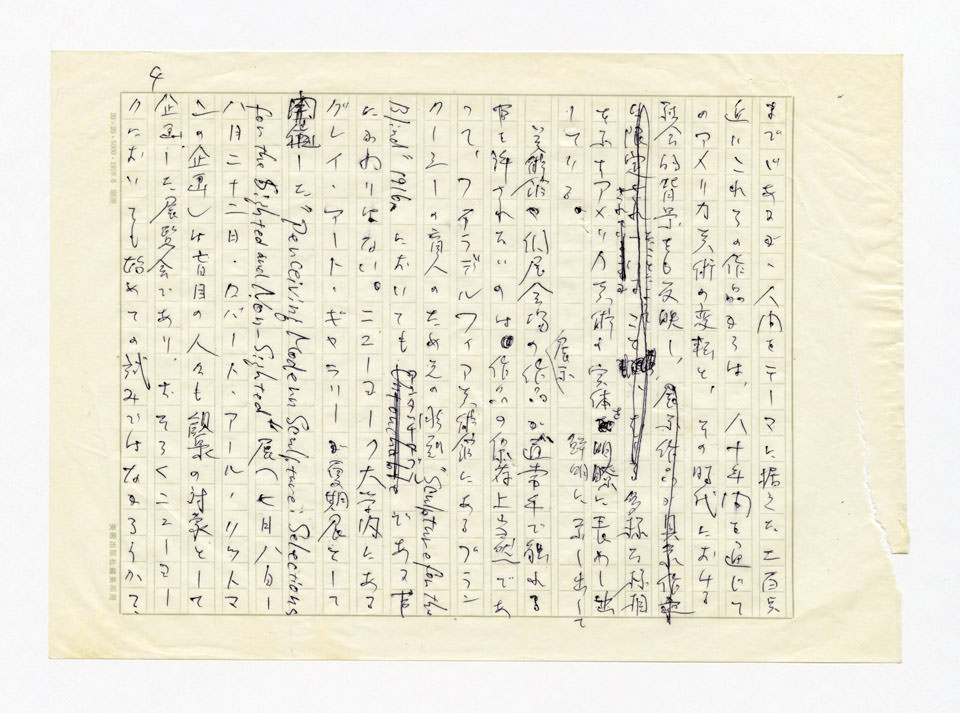 4
までであるが、人間をテーマに据えた二百点
近いこれらの作品からは、八十年間を通じて
のアメリカ美術の変転と、その時代における
社会的背景をも反映し、展示作品が具象作
に限定されていることも 多様な様相
を示すアメリカ美術の実体を明瞭に長めし出
鮮明に示し出して
している。
美術館や個展会場の作品が通常手で触れる
展示
事を許されないのは作品の保存上当然であ
って、フィラデルフィア美術館にあるブラン
クーシーの盲人のための彫刻"Sculpture for the
Blind" 1916 においても である
にかわりはない。ニューヨーク大学内にある
グレイ・アート・ギャラリーが夏期展として
企画した"Perceiving Modern Sculpture: Selections
for the Sighted and Non-Sighted"展(七月八日ー
八月二十二日・ロバート・アール・リットマ
この企画)は盲目の人々も観衆の対象として
企画した展覧会であり、おそらくニューヨー
クにおいても始めての試みではなかろうかて